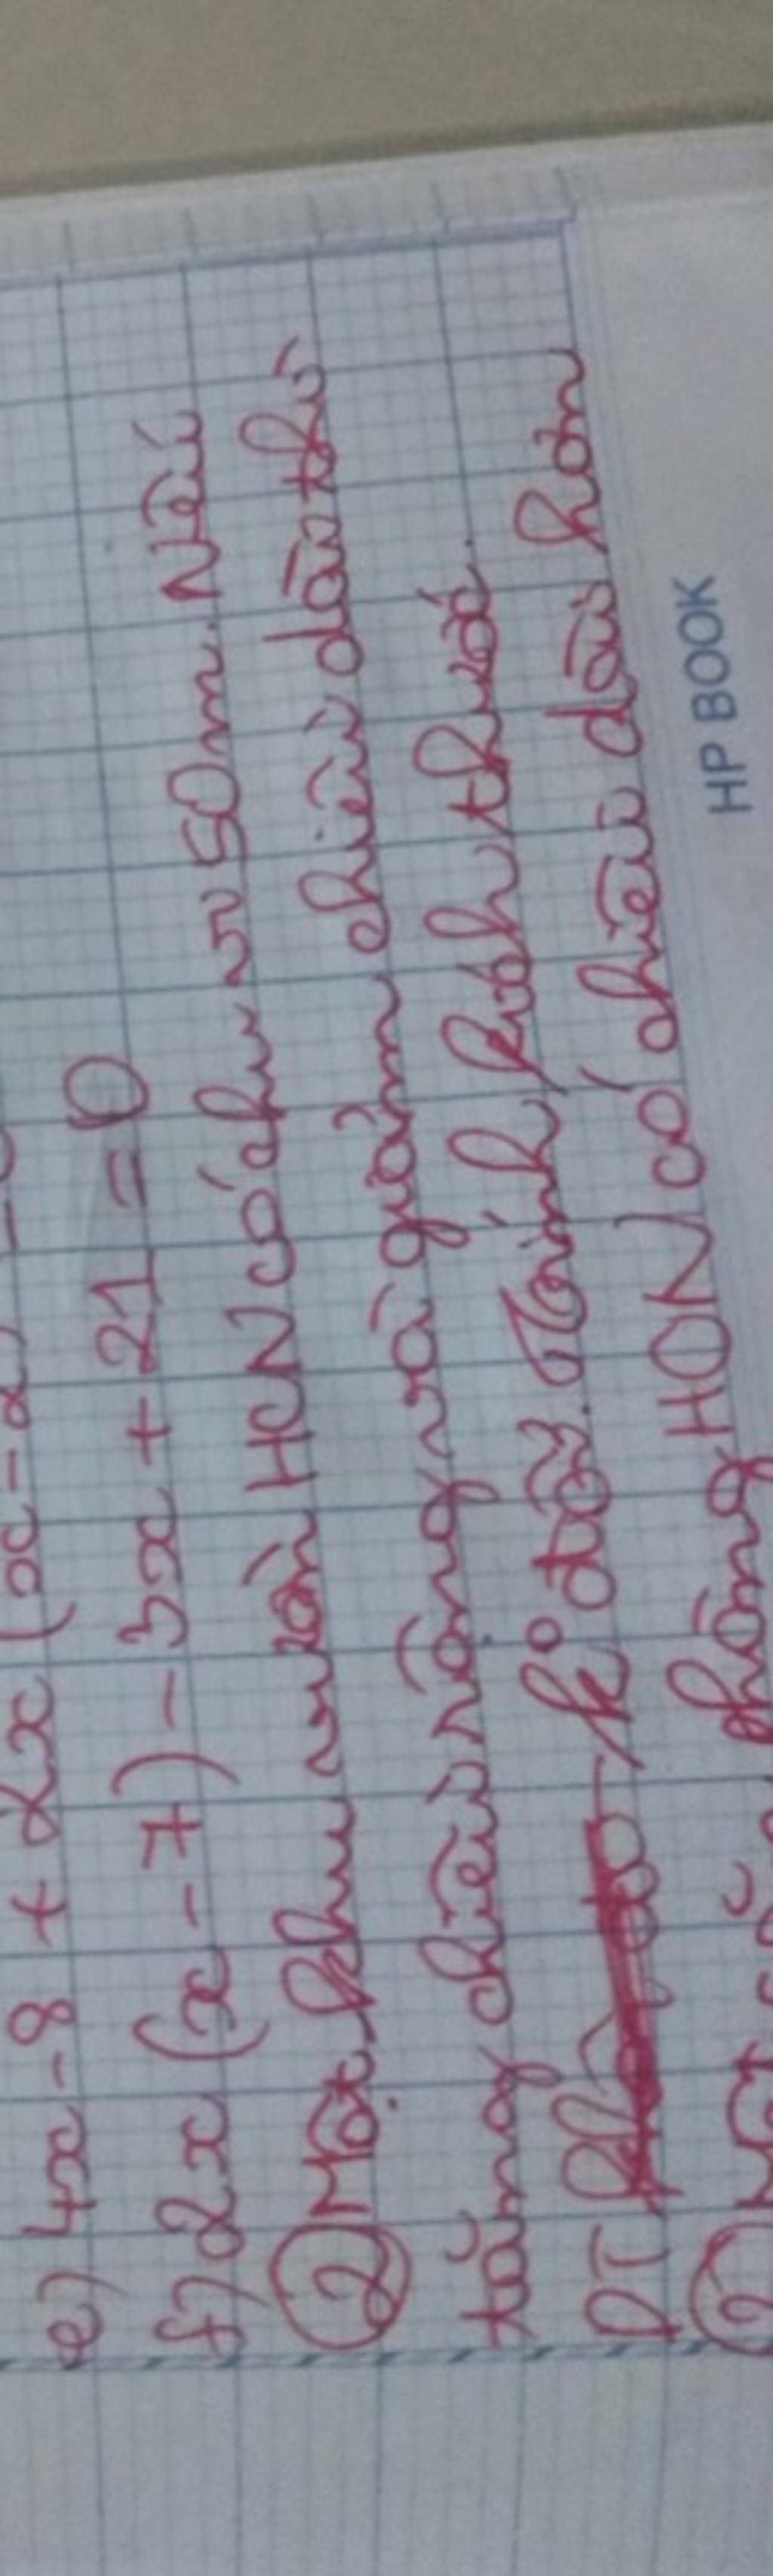 e) 4x - 8 + 2x (x - 2)
f) 2x (x - 7) - 3x + 21 = 0
② Một khu vườn HCN có chu vi 50m. Nếu
tăng chiều rộng và giảm chiều dài thì
DT k° đổi. Tính kích thước.
phòng HCN có chiều dài hơn
HP BOOK